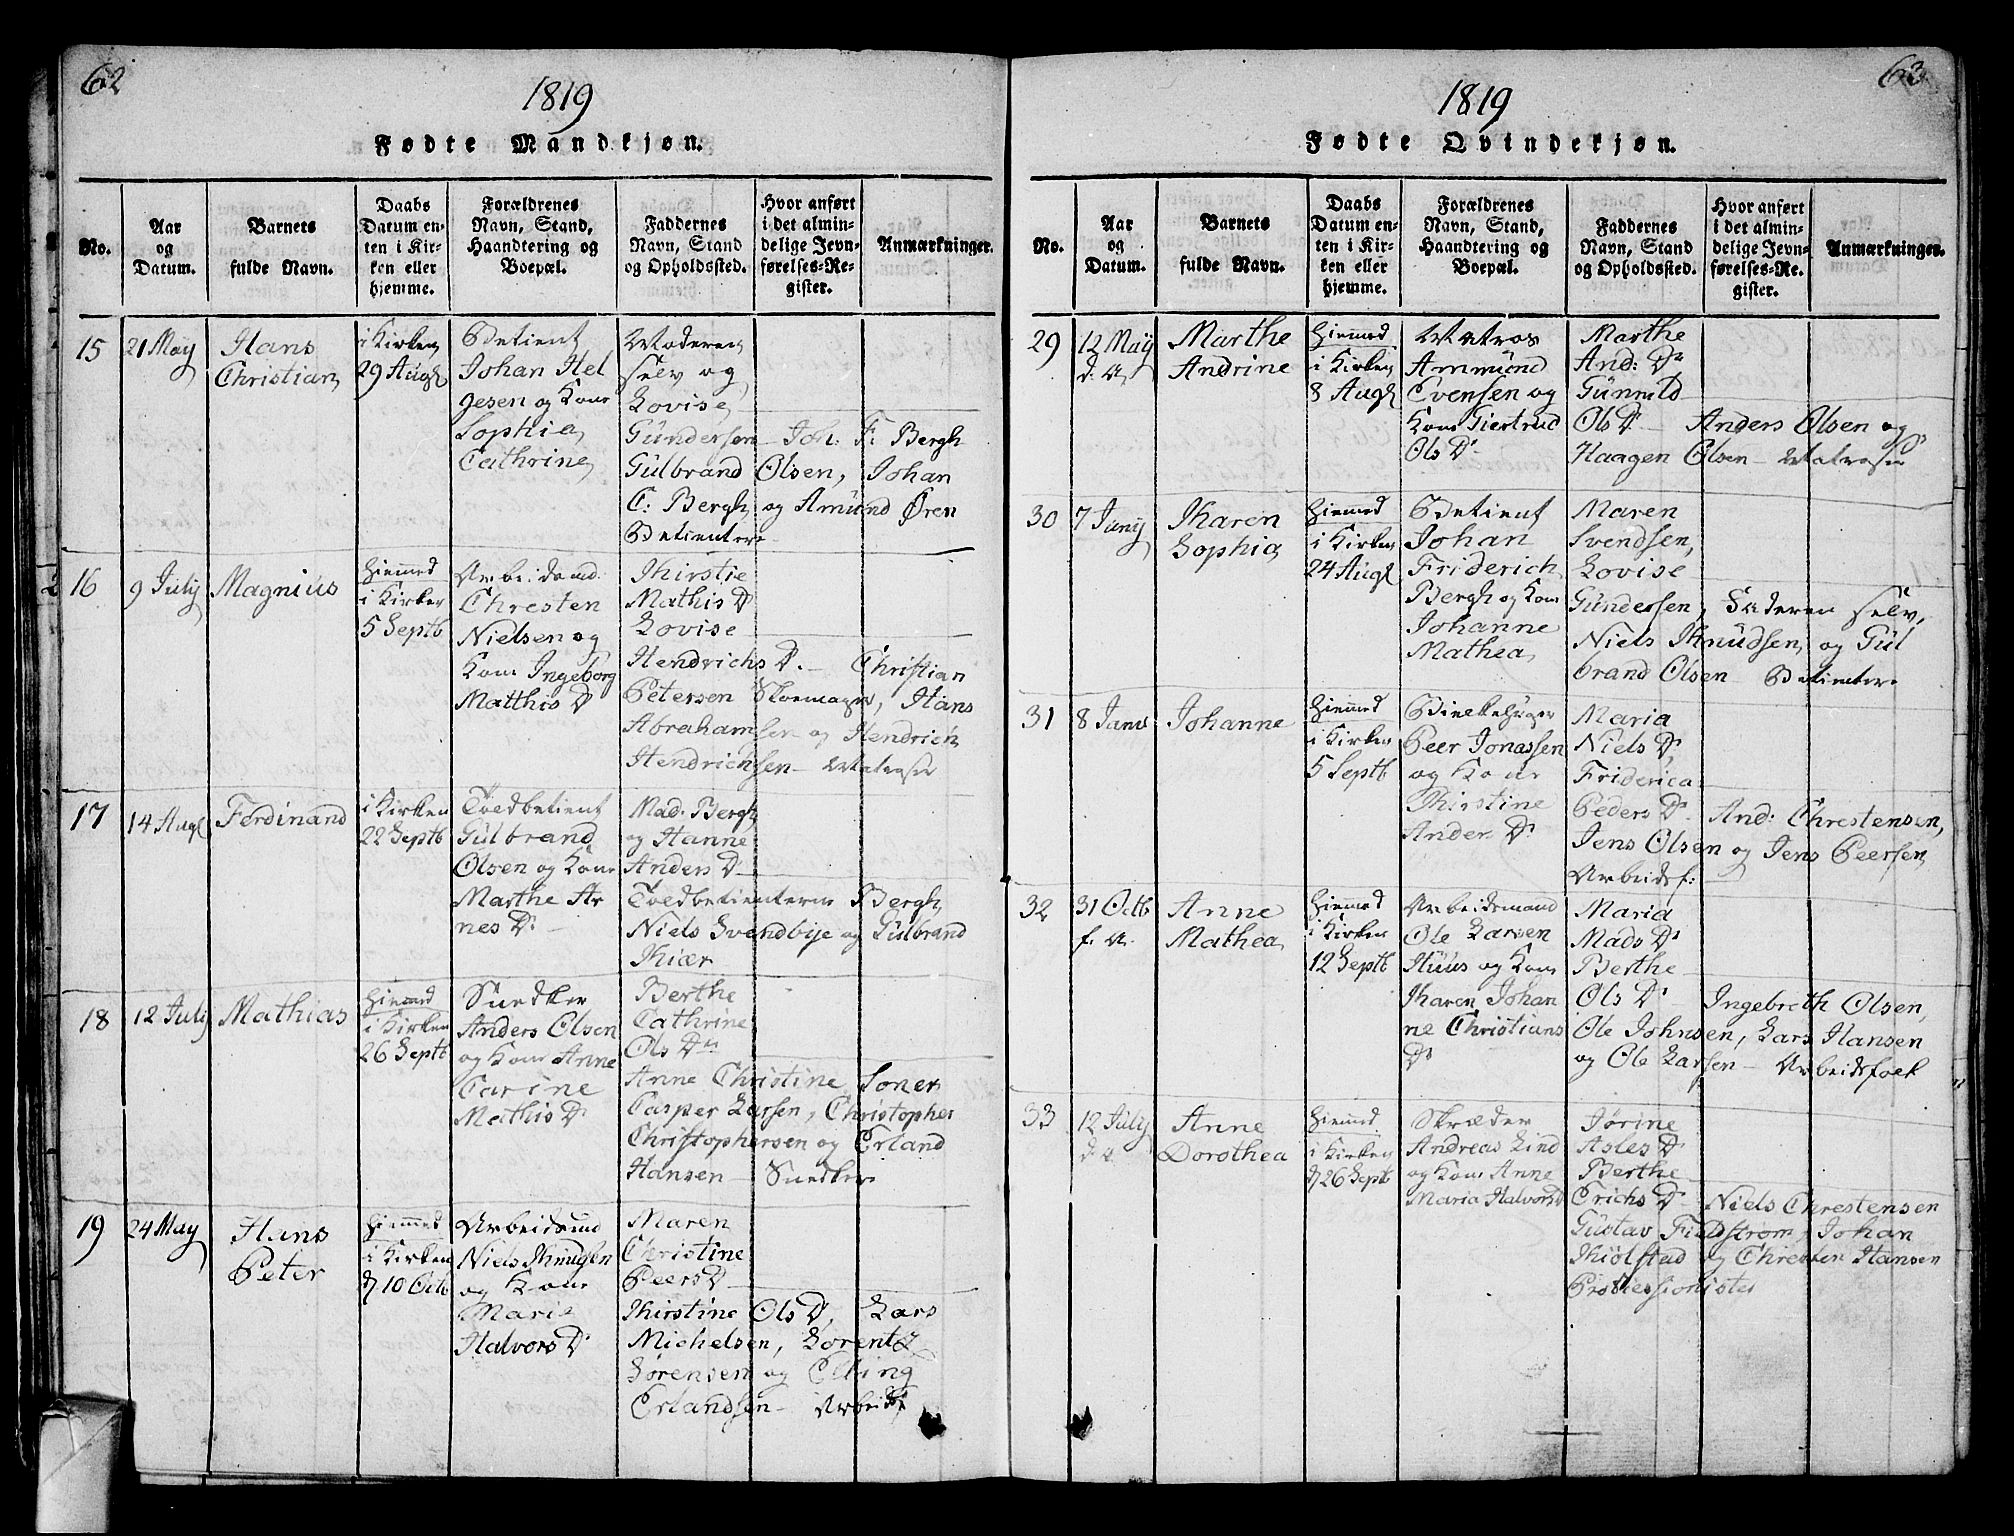 62
1819
Fødte Mandkjøn.
No.
Aar
og
Datum.
Barnets
fulde Navn.
Daabs
Datum en-
ten i Kir-
ken eller
hjemme.
Forældrenes
Navn, Stand,
Haandtering og
Boepæl.
Faddernes
Navn, Stand
og Opholdssted.
Hvor anført
i det almin-
delige Jevn-
førelses-Re-
gister.
Anmærkninger.
15
21 May
Hans
Christian
i Kirken
29 Augl
Betient
Johan Hel
gesen og Kone
Sophia
Cathrine
Moderen
selv og
Lovise
Gundersen - Joh: F: Bergh
Gulbrand Olsen, Johan
C: Bergh og Amund Ören
Betientere
16
9 July
Magnius
Hiemmed
i Kirken
5 Septb
Arbeidsmd
Chresten
Nielsen og
Kone Ingeborg
Matthis D
Khirstie
Mathis D
Lovise
Hendrichs D. - Christian
Petersen Skoemager, Hans
Abrahamsen og Hendrich
Hendrichsen - Matroser
17
14 Augl
Ferdinand
i Kirken
22 Septb
Toldbetient
Gulbrand
Olsen og Kone
Marthe Ar
nes Dr
Mad: Bergh
og Hanne
Anders D
Toldbetienterne Bergh
Niels Svendbye og Gulbrand
Khiær
18
12 July
Mathias
Hiemmed
i Kirken
26 Septb
Snedker
Anders Olsen
og Kone Anne
Carine
Mathis Dr
Berthe
Cathrine
Ols Dr
Anne Christine Soner
Casper Larsen, Christopher
Christophersen og Erland
Hansen - Snedker
19
24 May
Hans
Peter
Hiemmed
i Kirken
d 10 Octb
Arbeidsmd
Niels Khnugsen
og Kone
Marie
Halvors Dr
Maren
Christine
Peers D
Khirstine Ols D, Lars
Michelsen, Lorentz
Sørensen og Elling
Erlandsen - Arbeidsf
63
1819
Fødte Qvindekjøn.
No.
Aar
og
Datum.
Barnets
fulde Navn.
Daabs
Datum en-
ten i Kir-
ken eller
hjemme.
Forældrenes
Navn, Stand,
Haandtering og
Boepæl.
Faddernes
Navn, Stand
og Opholdssted.
Hvor anført
i det almin-
delige Jevn-
førelses-Re-
gister.
Anmærkninger.
29
12 May
d. A
Marthe
Andrine
Hiemmed
i Kirken
8 Augl
Matros
Ammund
Evensen og
Kone Giertrud
Ols Dr
Marthe
And: Dr
Gunnild
Ols D - Anders Olsen og
Haagen Olsen - Matroser
30
7 Juny
Kharen
Sophia
Hiemmed
i Kirken
24 Augl
Betient
Johan
Friderich
Bergh og Kone
Johanne
Mathea
Maren
Svendsen,
Lovise
Gundersen, Faderen selv,
Niels Khnudsen, og Gul
brand Olsen - Betientere
31
8 Janv
Johanne
Hiemmed
i Kirken
5 Septb
Bielkehuger
Peer Jonassen
og Kone
Khirstine
Anders Dr
Maria
Niels Dr
Friderica
Peders Dr And: Chrestensen,
Jens Olsen og Jens Peersen
Arbeidsf:
32
31 Octb
f. A.
Anne
Mathea
Hiemmed
i Kirken
12 Septb
Arbeidsmand
Ole Larsen
Huus og Kone
Kharen Johan
ne Christians
Dr
Maria
Mads Dr
Berthe
Ols Dr Ingebreth Olsen,
Ole Johnsen, Lars Hansen
og Ole Larsen - Arbeidsfolk
33
12 July
d. A
Anne
Dorothea
Hiemmed
i Kirken
d 26 Septb
Skræder
Andreas Lind
og Kone Anne
Maria Halvors D
Jørine
Asles D
Berthe
Erichs D Niels Chrestensen
Gustav Fieldstrøm, Johan
Khiølstad og Chresten Hansen
Professionister